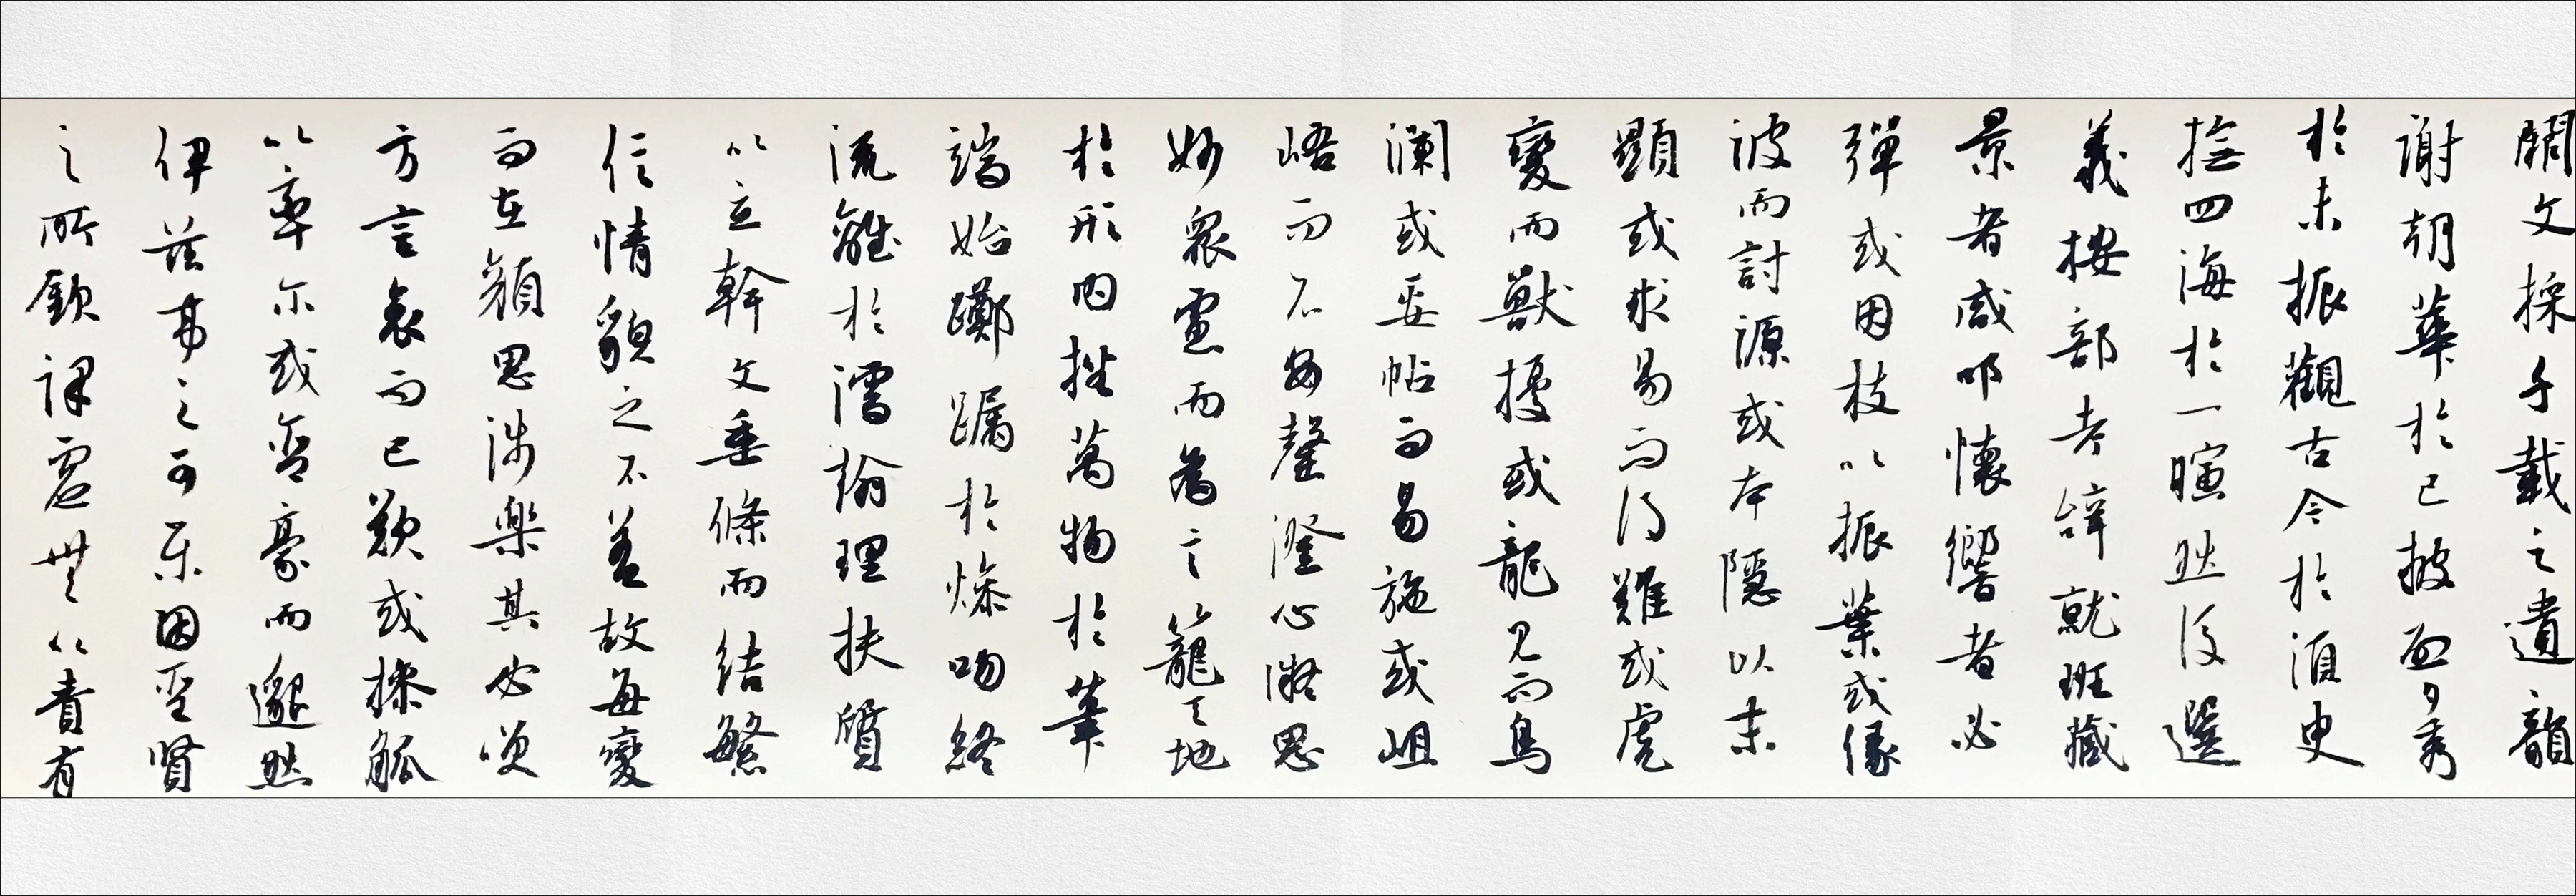 闕文採千載之遺韻
謝朝華於已披啟夕秀
於未振觀古今於湏史
撫四海於一暄然後選
義按部考辞就班藏
景者咸叩懷響者必
彈或因枝以振葉或緣
波而討源或本隱以末
顯或求易而得難或虎
變而獸擾或龍見而鳥
瀾或妥帖而易施或岨
峿而不安罄澄心凝思
妙衆慮而為言籠天地
於形内挫萬物於筆
端始躑躅於燥吻終
流離於濡翰理扶質
以立幹文垂條而結繁
信情貌之不差故每變
而在顏思涉樂其必笑
方言哀而已歎或操觚
以率尔或含豪而邈然
伊茲事之可樂固聖賢
之所欽課虛無以責有